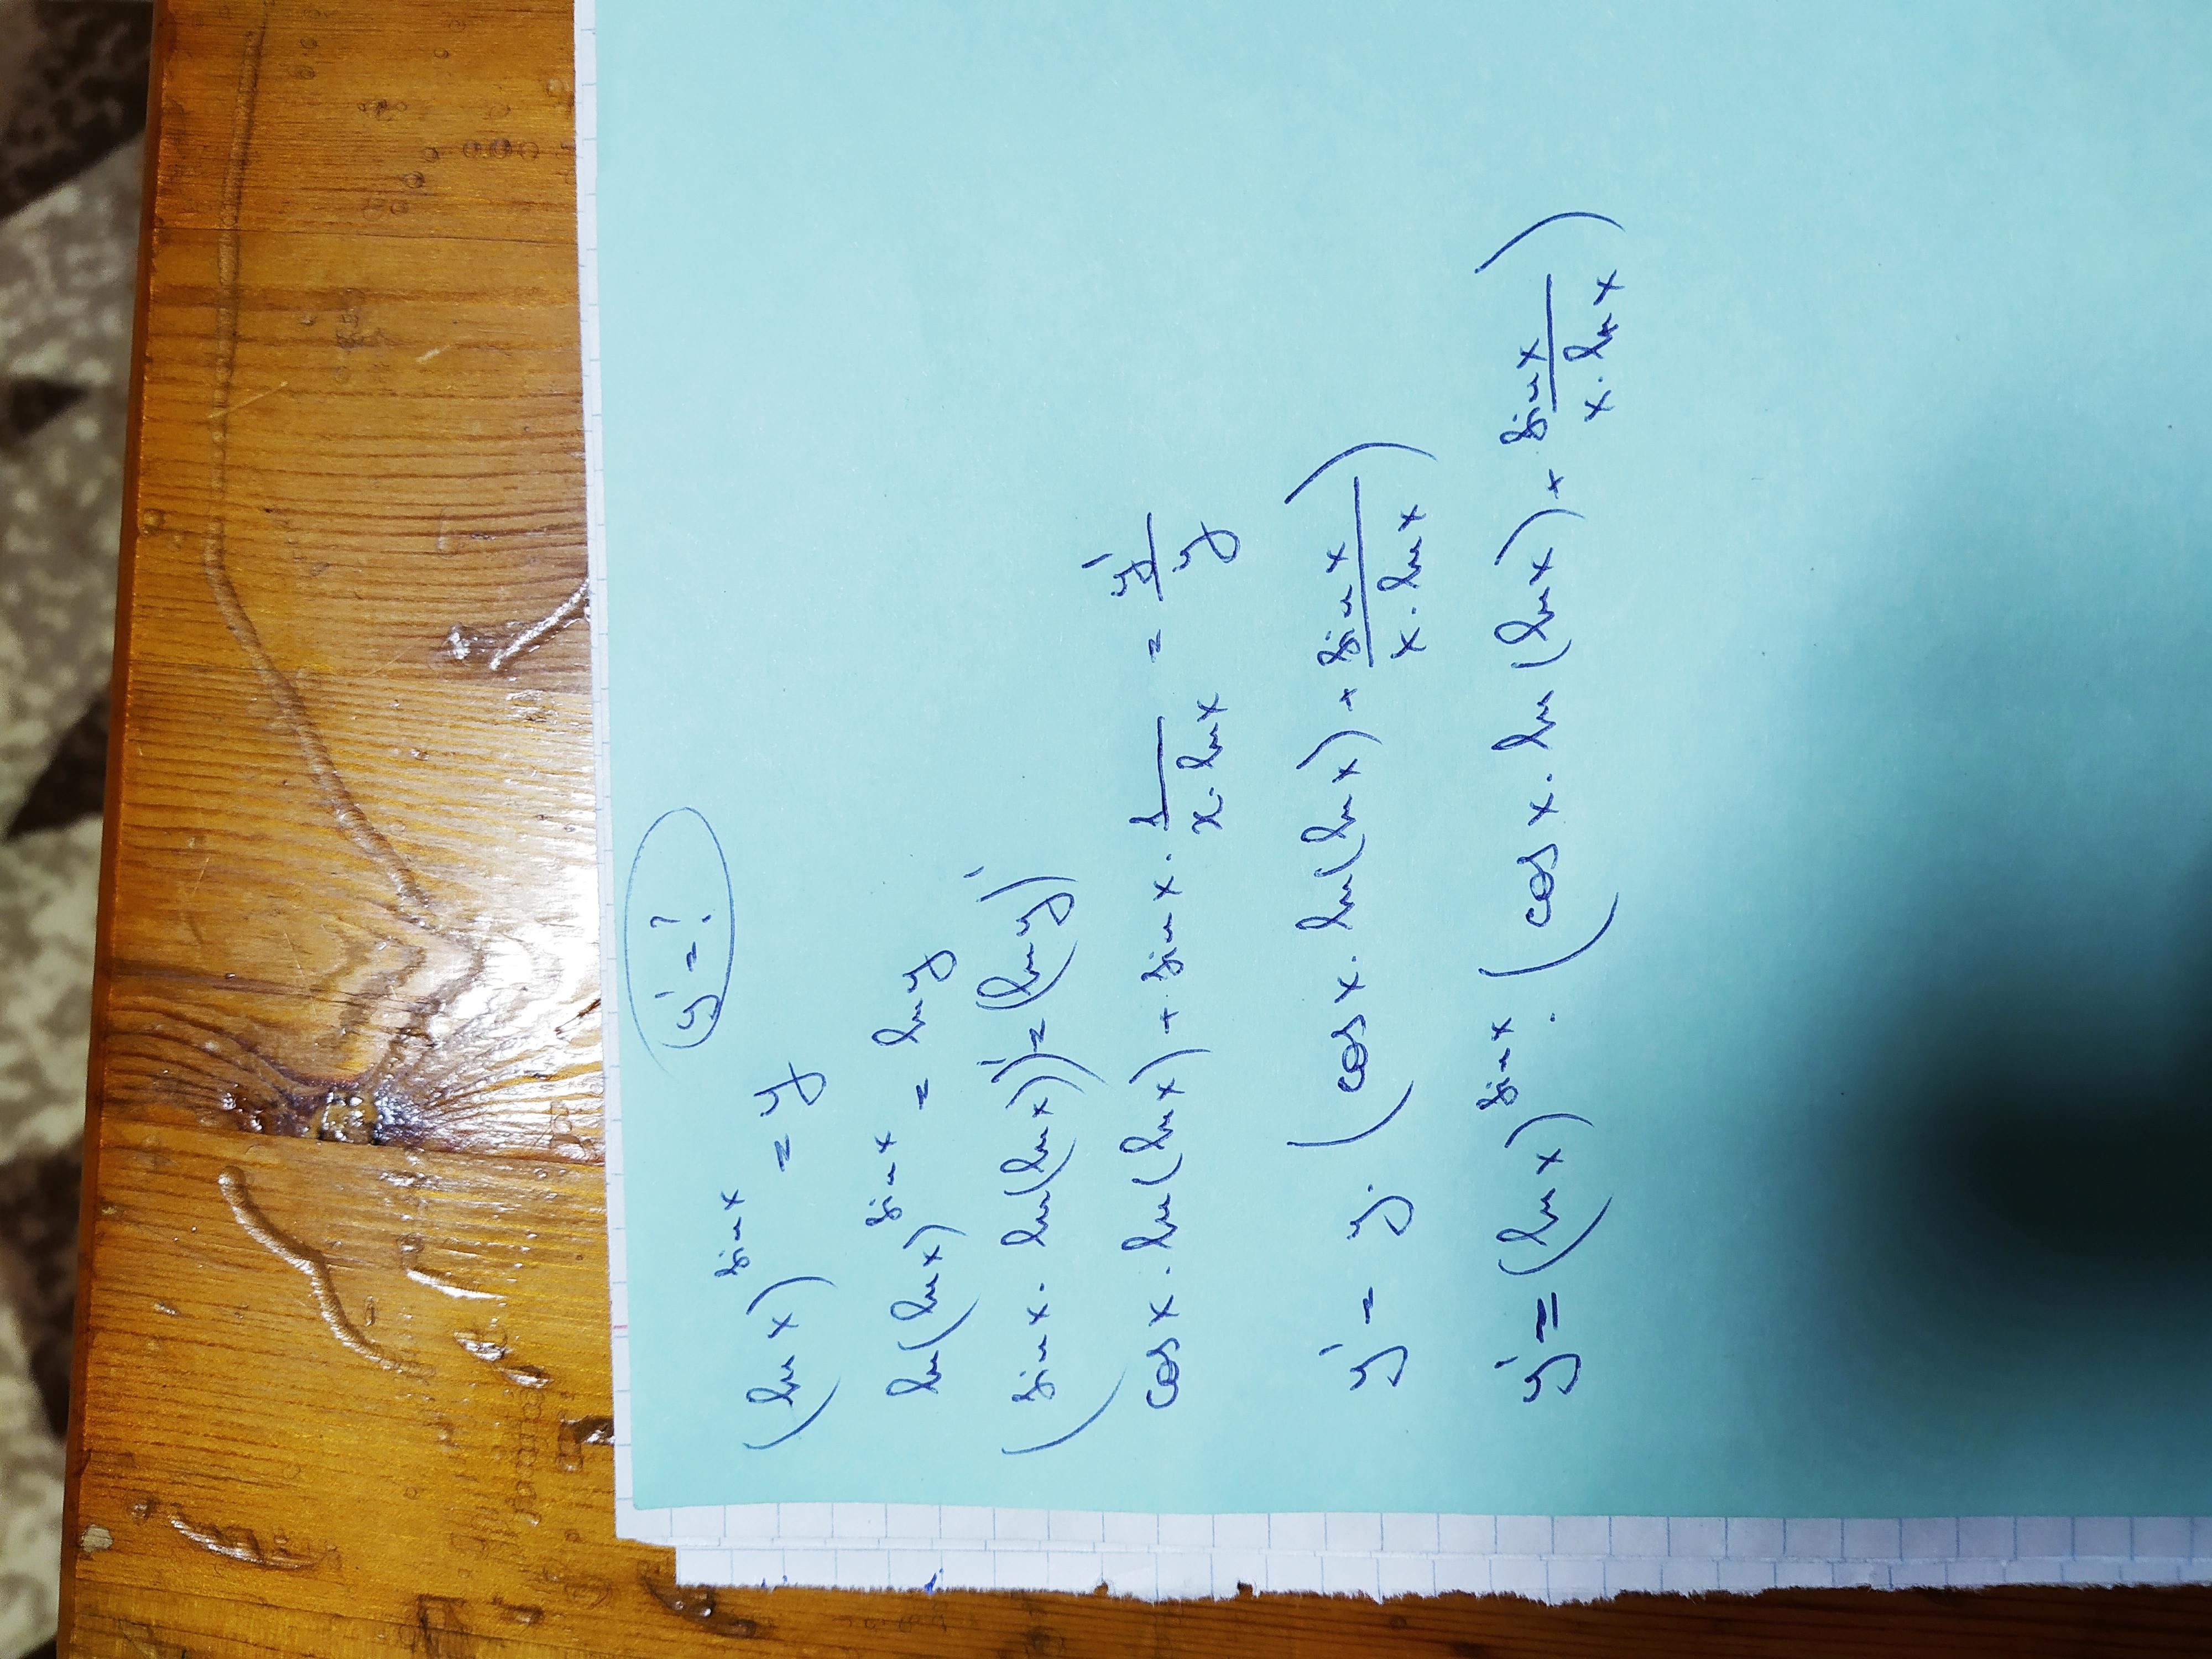 y' = ?
(ln x)^{sin x} = y
ln(ln x)^{sin x} = ln y
(sin x · ln(ln x))' = (ln y)'
cos x · ln(ln x) + sin x · \frac{1}{x · ln x} = \frac{y'}{y}
y' = y · (cos x · ln(ln x) + \frac{sin x}{x · ln x})
y' = (ln x)^{sin x} · (cos x · ln(ln x) + \frac{sin x}{x · ln x})